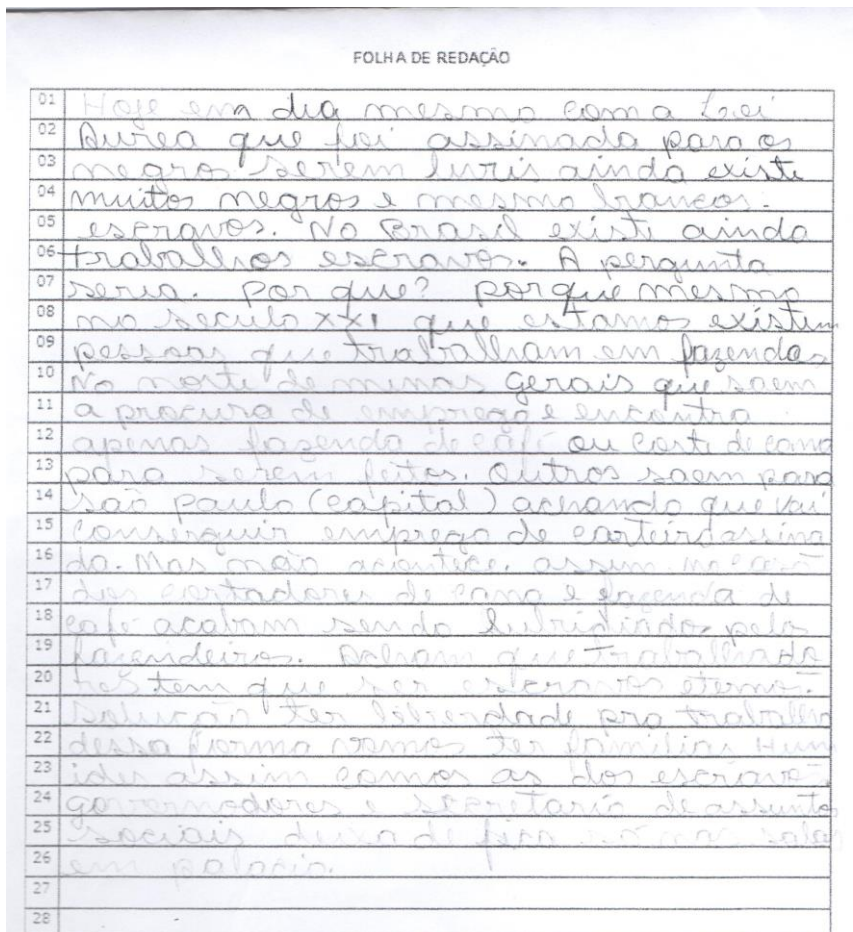 FOLHA DE REDAÇÃO
01 Hoje em dia mesmo com a Lei
02 Aurea que foi assinada para os
03 negros serem livris ainda existe
04 muitos negros e mesmo brancos
05 escravos. No Brasil existi ainda
06 trabalhos escravos. A pergunta
07 seria. Por que? porque mesmo
08 no seculo XXI que estamos existem
09 pessoas que trabalham em fazendas
10 No norte de minas gerais que saem
11 a procura de emprego e encontra
12 apenas fazenda de café ou corte de cana
13 para serem feitos. Outros saem para
14 são Paulo (capital) achando que vai
15 conseguir emprego de carteira assina
16 da. Mas não acontece. assim no caso
17 dos cortadores de cana e fazenda de
18 café acabam sendo pelos
19 fazendeiros. Acham que trabalhado
20 res tem que ser escravos eternos.
21 Solução ter liberdade pra trabalho
22 dessa forma vamos ter familias Hum
23 ides assim como as dos escravos
24 governadores e secretario de assuntos
25 sociais deixa de fica só nas salas
26 em palacio.
27
28